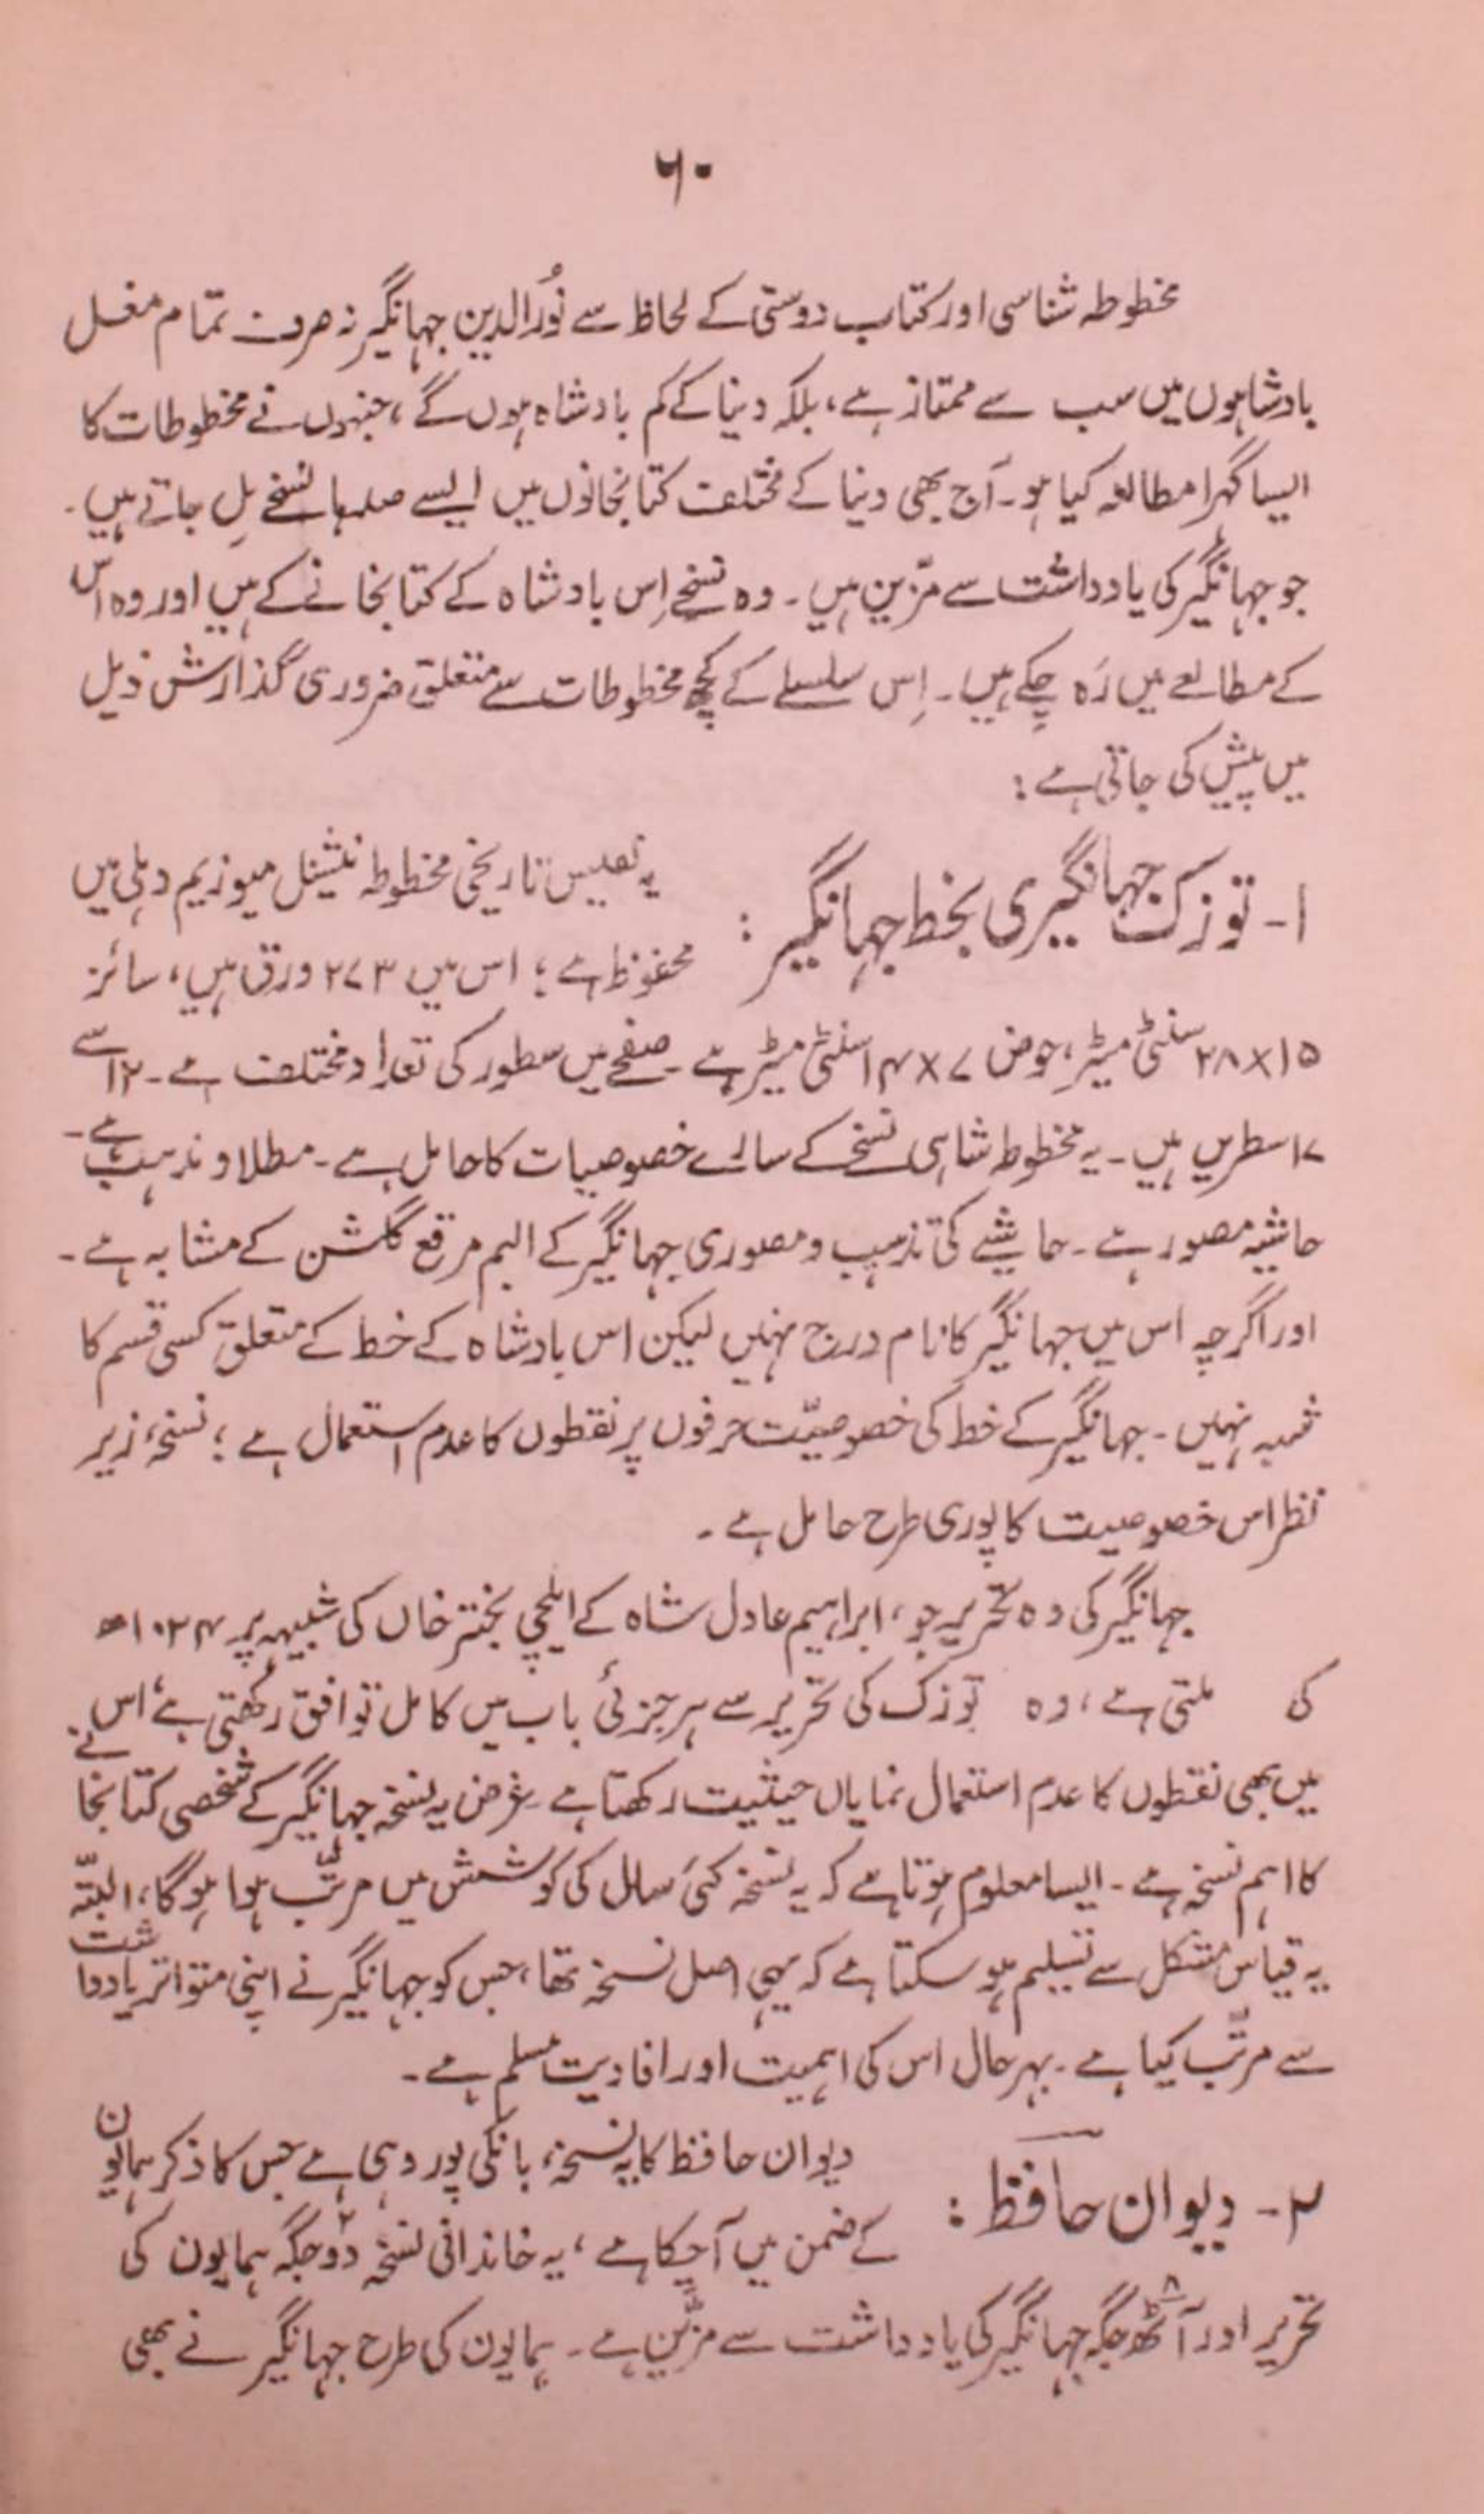 ۶۰
مخطوطہ شناسی اور کتاب دوستی کے لحاظ سے نُورالدین جہانگیر نہ صرف تمام مغل
بادشاہوں میں سب سے ممتاز ہے، بلکہ دنیا کے کم بادشاہ ہوں گے، جنہوں نے مخطوطات کا
ایسا گہرا مطالعہ کیا ہو۔ آج بھی دنیا کے مختلف کتابخانوں میں ایسے صدہا نسخے مل جاتے ہیں۔
جو جہانگیر کی یادداشت سے مزّین ہیں۔ وہ نسخے اِس بادشاہ کے کتابخانے کے ہیں اور وہ اس
کے مطالعے میں رَہ چکے ہیں۔ اِس سلسلے کے کچھ مخطوطات سے متعلق ضروری گذارش ذیل
میں پیش کی جاتی ہے:
۱۔ توزک جہانگیری بخط جہانگیر: یہ نفیس تاریخی مخطوطہ نیشنل میوزیم دہلی میں
محفوظ ہے؛ اس میں ۲۷۳ ورق ہیں، سائز
۲۸x۱۵ سنٹی میٹر، حوض ۱۴x۷ سنٹی میٹر ہے۔ صفحے میں سطور کی تعداد مختلف ہے۔ ۱۲ سے
۱۷ سطریں ہیں۔ یہ مخطوطہ شاہی نسخے کے سارے خصوصیات کا حامل ہے۔ مطلا و مذہب ہے۔
حاشیہ مصور ہے۔ حاشیے کی تذہیب و مصوری جہانگیر کے البم مرقع گلشن کے مشابہ ہے۔
اور اگرچہ اس میں جہانگیر کا نام درج نہیں لیکن اس بادشاہ کے خط کے متعلق کسی قسم کا
شبہ نہیں۔ جہانگیر کے خط کی خصوصیّت حرفوں پر نقطوں کا عدم استعمال ہے؛ نسخۂ زیر
نظر اس خصوصیت کا پوری طرح حامل ہے۔
جہانگیر کی وہ تحریر جو، ابراہیم عادل شاہ کے ایلچی بختر خاں کی شبیہہ پر ۱۰۲۴ھ
کی ملتی ہے، وہ توزک کی تحریر سے ہر جزئی باب میں کامل توافق رکھتی ہے، اس
میں بھی نقطوں کا عدم استعمال نمایاں حیثیت رکھتا ہے۔ غرض یہ نسخہ جہانگیر کے شخصی کتابخانے
کا اہم نسخہ ہے۔ ایسا معلوم ہوتا ہے کہ یہ نسخہ کئی سال کی کوشش میں مرتّب ہوا ہوگا، البتّہ
یہ قیاس مشکل سے تسلیم ہو سکتا ہے کہ یہی اصل نسخہ تھا، جس کو جہانگیر نے اپنی متواتر یادداشت
سے مرتّب کیا ہے۔ بہر حال اس کی اہمیت اور افادیت مسلم ہے۔
۲۔ دیوان حافظ: دیوان حافظ کا یہ نسخہ، بانکی پور وہی ہے جس کا ذکر ہمایون
کے ضمن میں آچکا ہے، یہ خاندانی نسخہ دو۲ جگہ ہمایون کی
تحریر اور آٹھ۸ جگہ جہانگیر کی یادداشت سے مزّین ہے۔ ہمایون کی طرح جہانگیر نے بھی